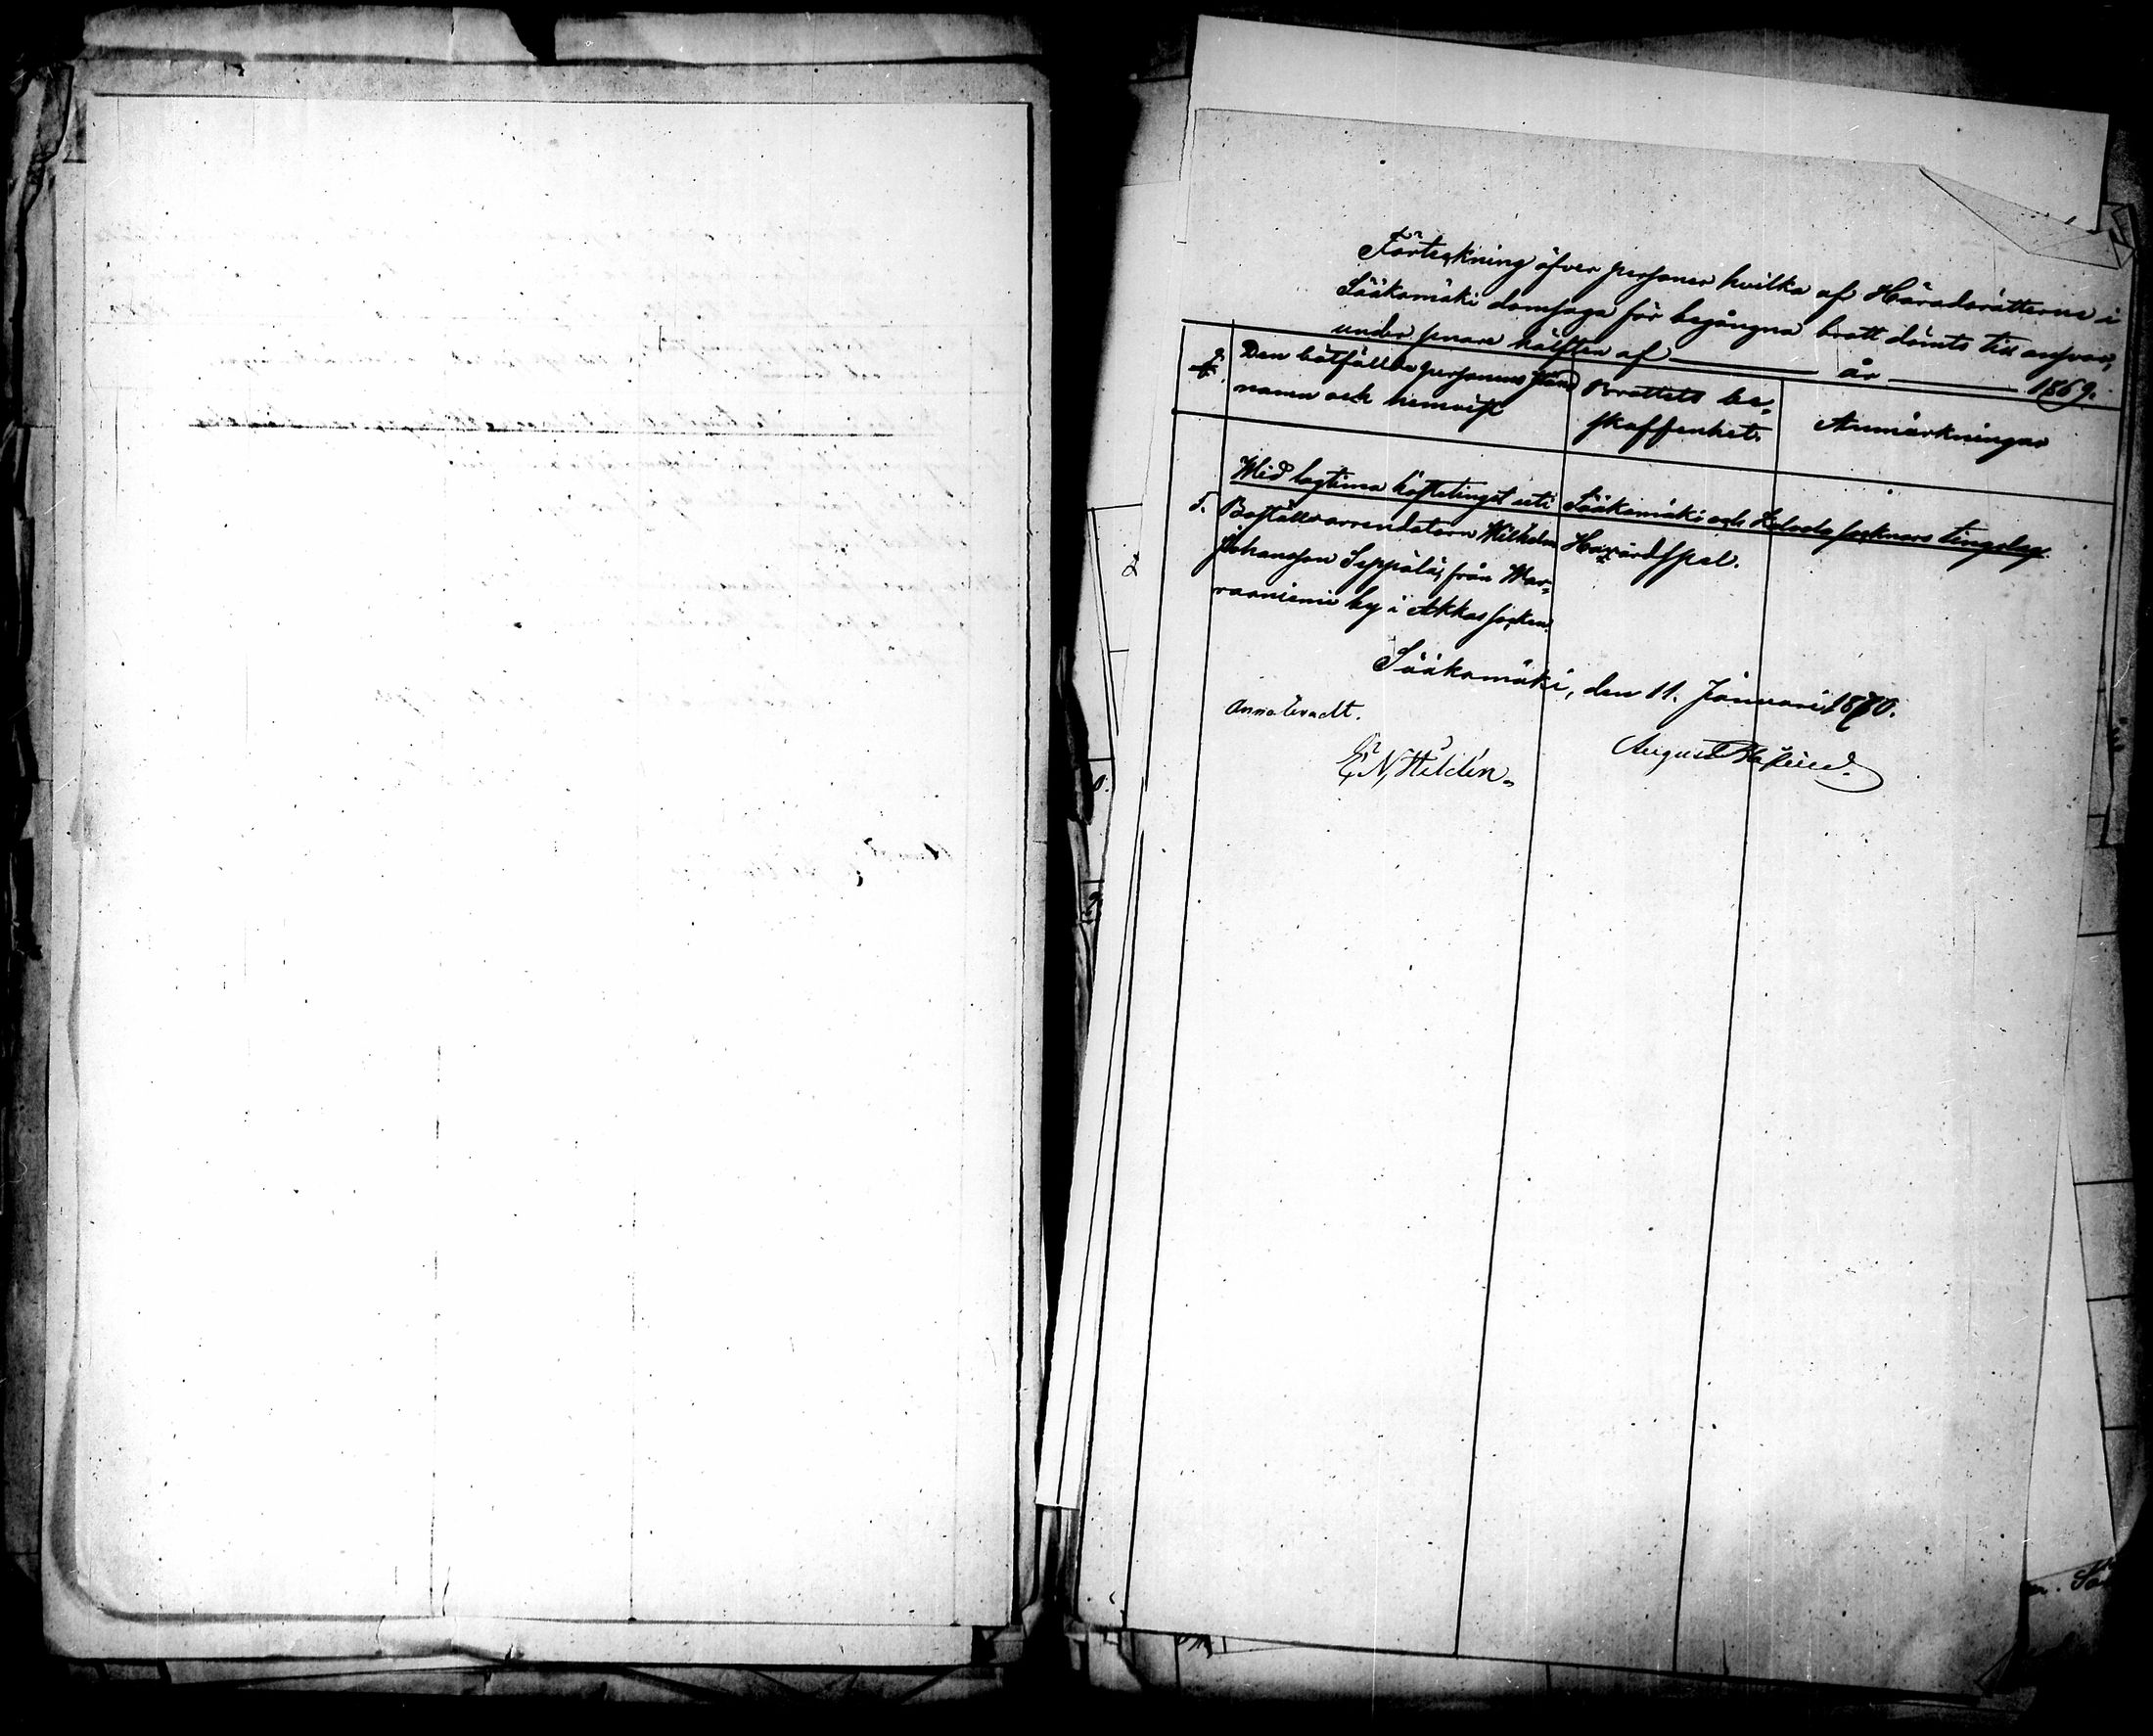 Förteckning öfver personer hvilka af Häradsrätterne i
Sääksmäki domsaga för begångna brott dömts till ansvar,
under senare hälften af år 1869.
Den bötfällde personens stånd
namn och hemvist
Brottets be-
skaffenhet.
Anmärkningar
Wid lagtima hösttinget uti Sääksmäki och Kalvola socknars tingslag.
5. Boställsarrendatorn Wilhelm
Johansson Seppälä, från War-
raaniemi by i Akkas socken.
Hazardspel.
Sääksmäki, den 11. Januari 1870.
August
E N Heldén
2